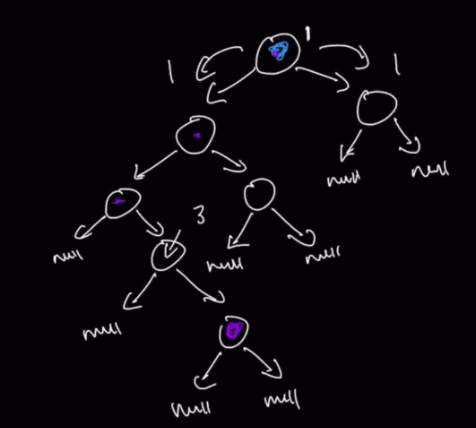 1
1
1
null
null
3
null
null
null
null
null
null